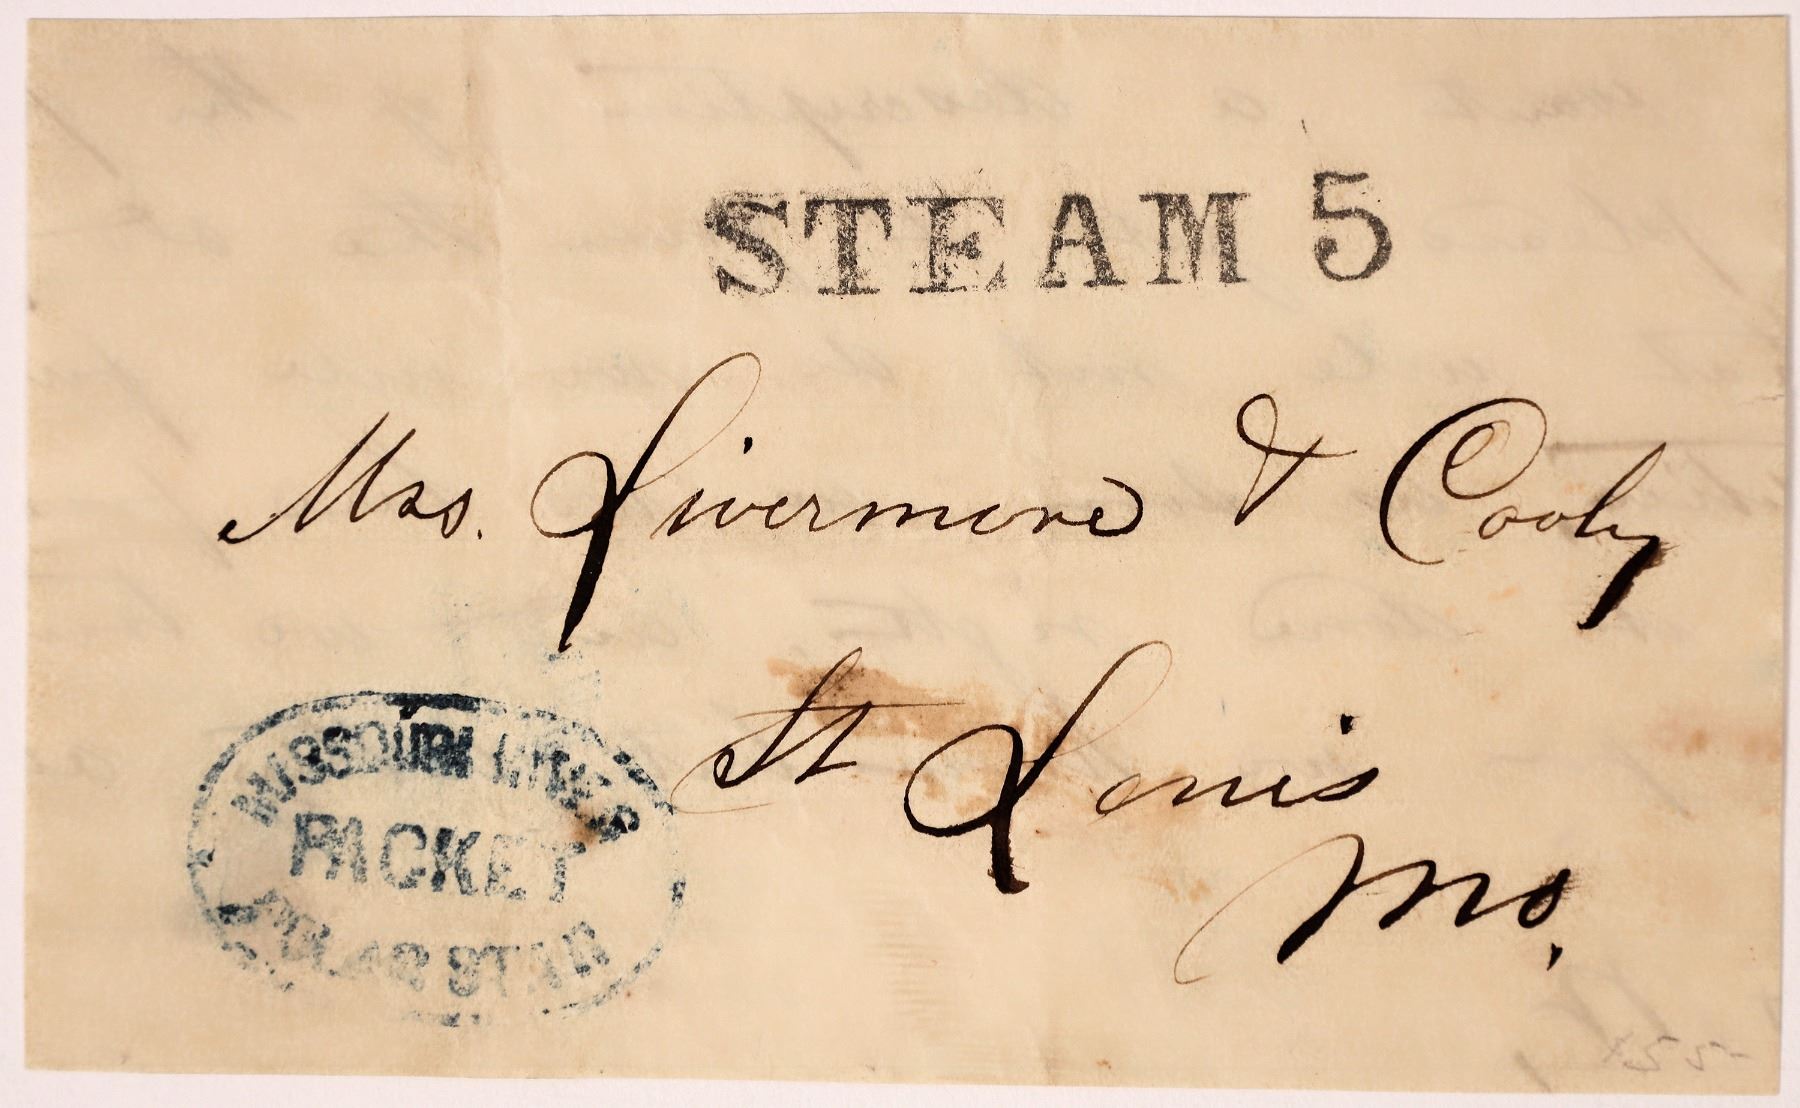 STEAM 5
Mss. Livermore & Cooly
St Louis
Mo.
MISSOURI RIVER
PACKET
POLAR STAR